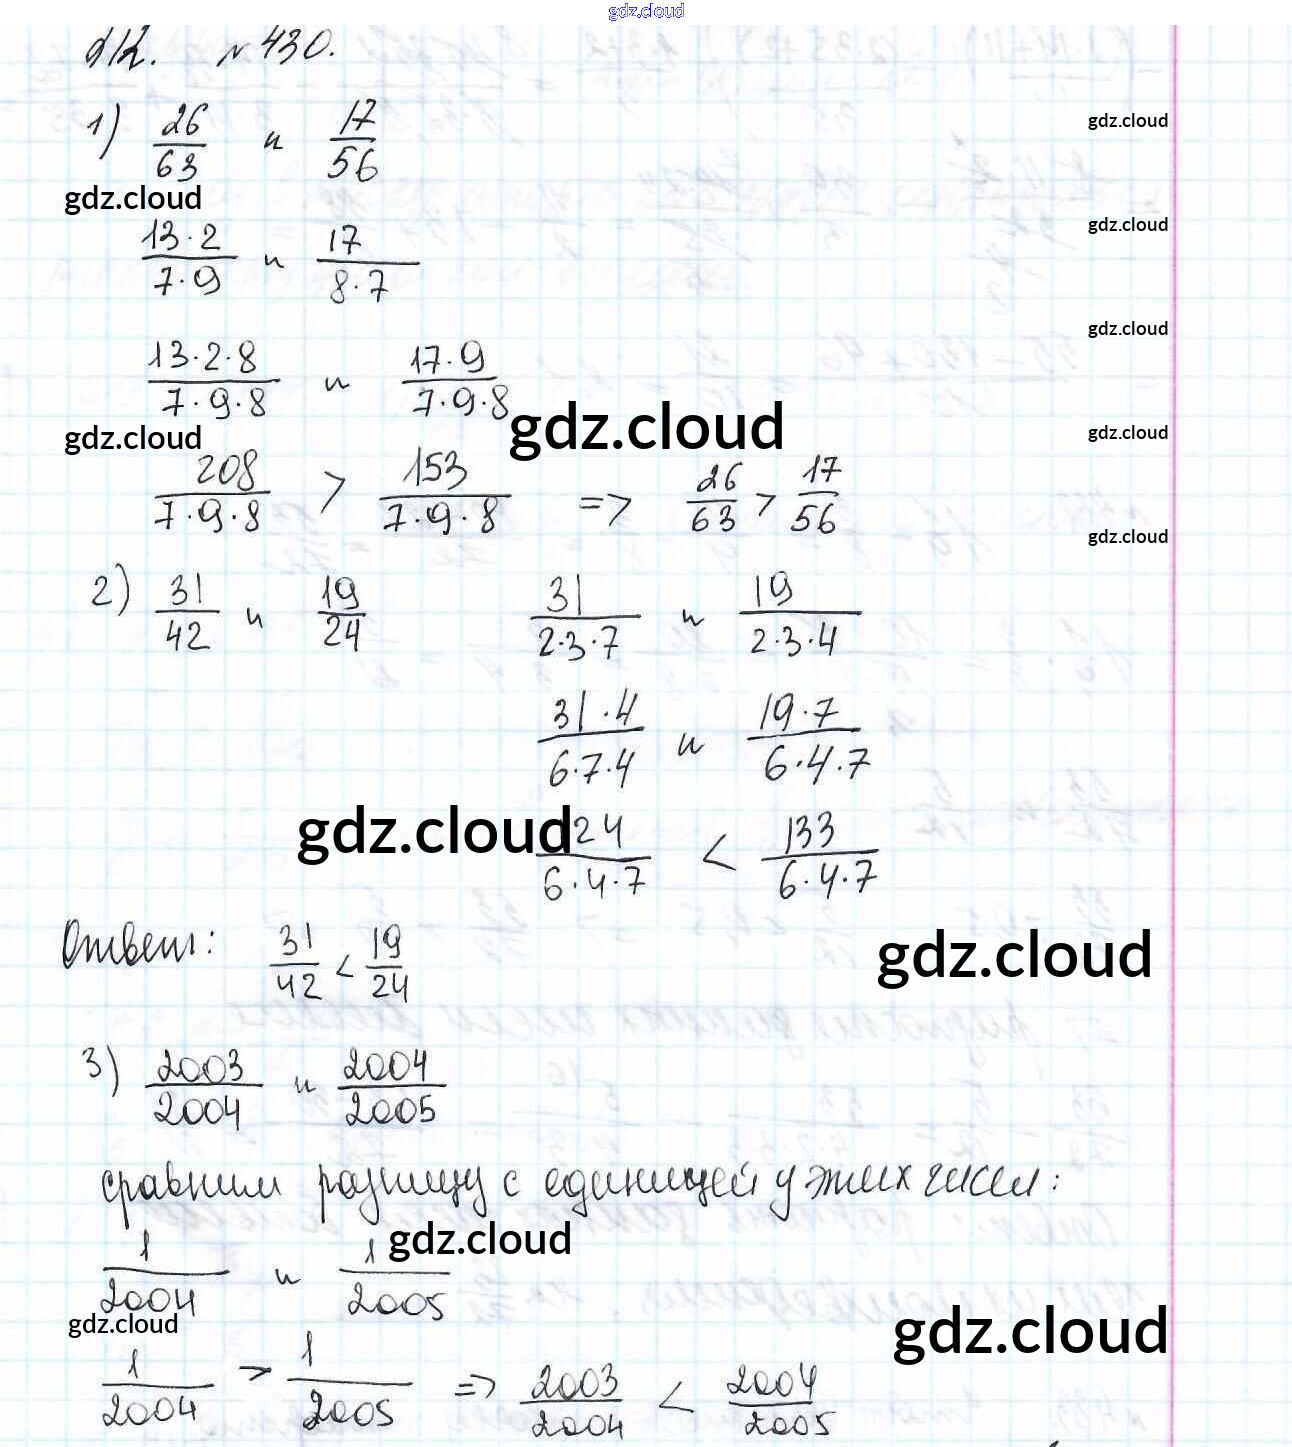 gdz.cloud
№430.
1) 26/63 и 17/56
gdz.cloud
gdz.cloud
13·2/7·9 и 17/8·7
gdz.cloud
13·2·8/7·9·8 и 17·9/7·9·8
gdz.cloud
gdz.cloud
gdz.cloud
gdz.cloud
208/7·9·8 > 153/7·9·8 => 26/63 > 17/56
gdz.cloud
2) 31/42 и 19/24 31/2·3·7 и 19/2·3·4
31·4/6·7·4 и 19·7/6·4·7
gdz.cloud 24/6·4·7 < 133/6·4·7
Ответ: 31/42 < 19/24
gdz.cloud
3) 2003/2004 и 2004/2005
сравним разницу с единицей у этих чисел:
gdz.cloud
1/2004 и 1/2005
gdz.cloud
gdz.cloud
1/2004 > 1/2005 => 2003/2004 < 2004/2005